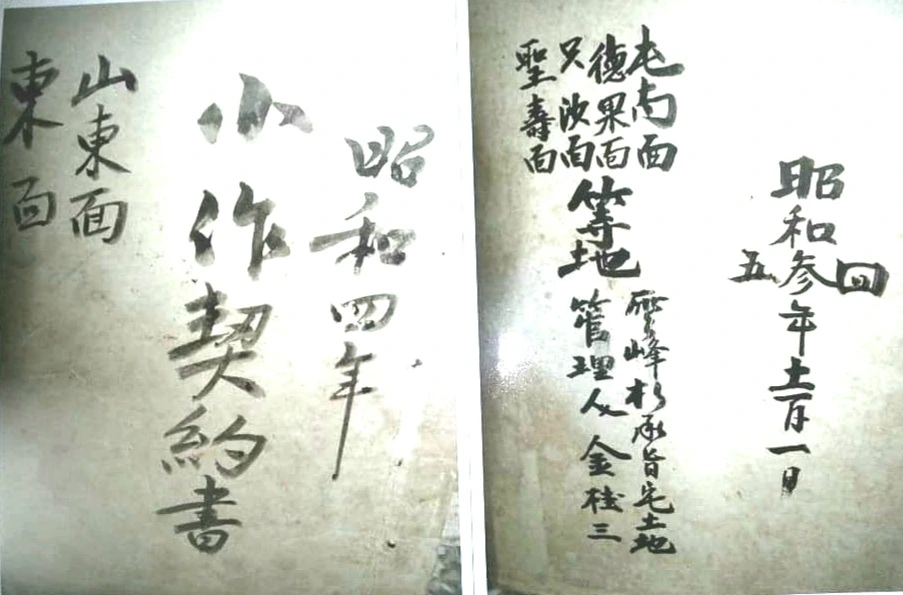 昭和四年
小作契約書
山東面
東面
四
昭和參年十一月一日
五
屯南面
德果面
只沙面
聖壽面
等地
峰 承旨宅土地
管理人 金 三